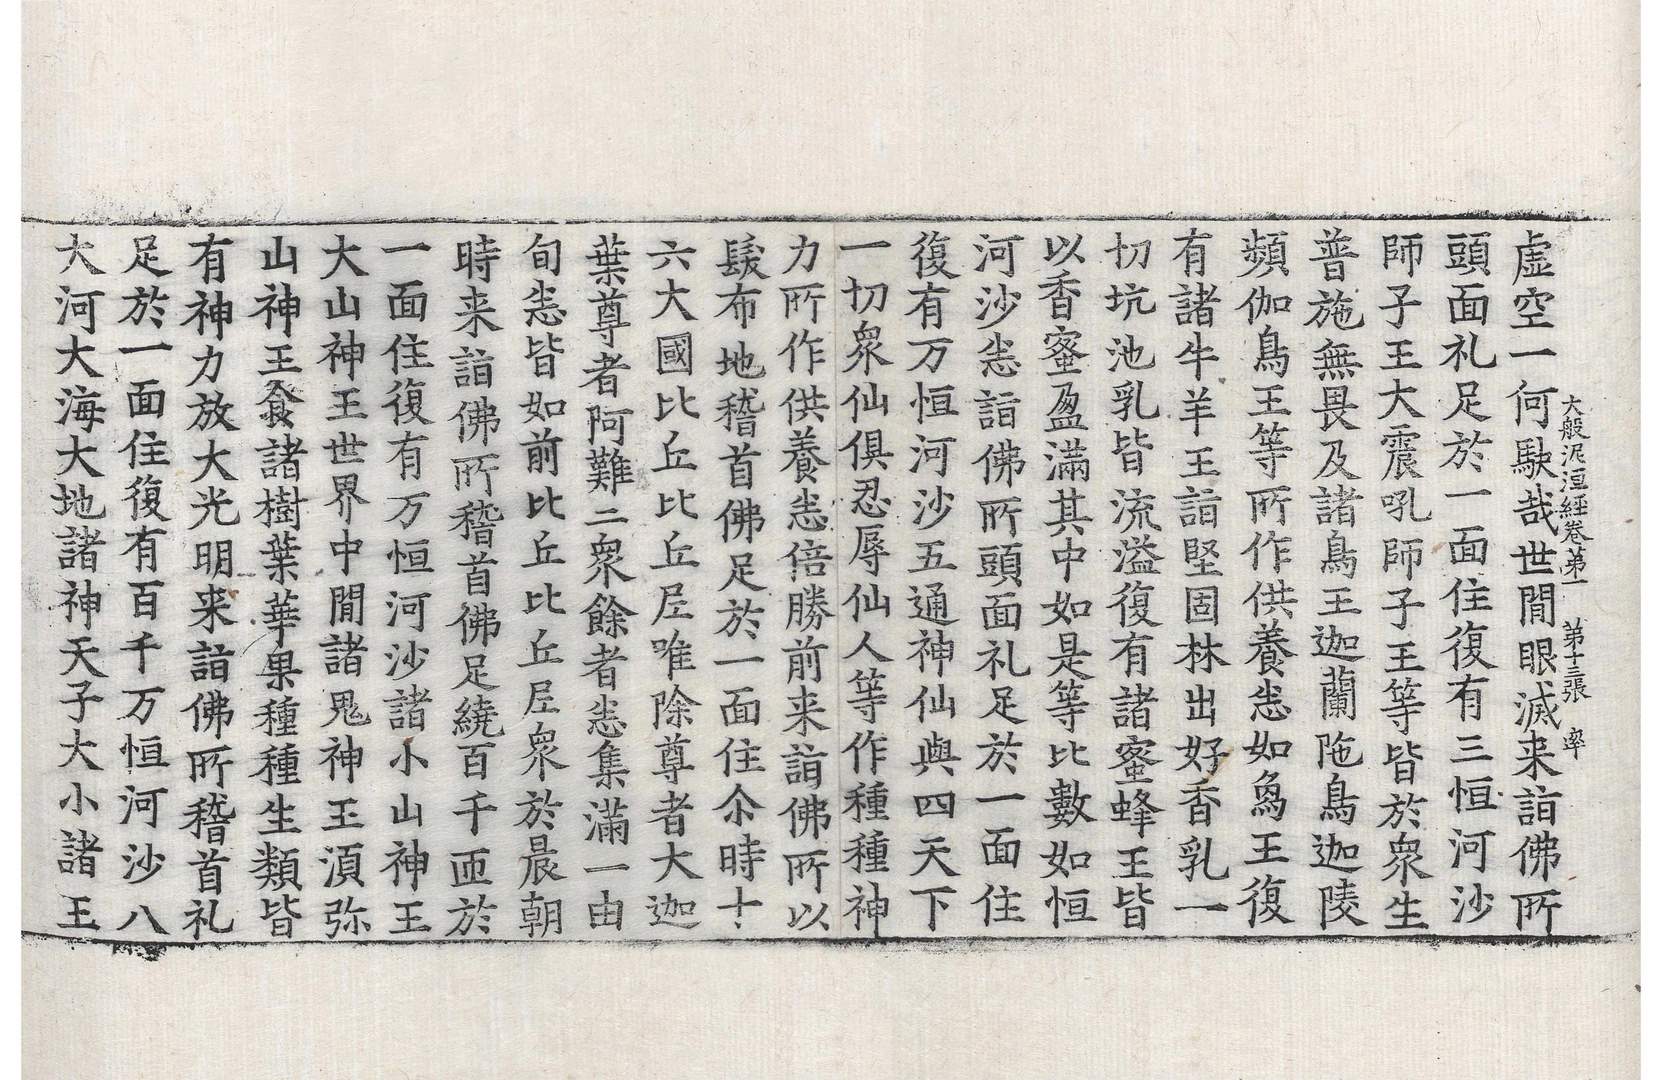 大般泥洹經卷第一 第十三張 率
虛空一何駛哉世閒眼滅来詣佛所
頭面礼足於一面住復有三恒河沙
師子王大震吼師子王等皆於衆生
普施無畏及諸鳥王迦蘭陁鳥迦陵
頻伽鳥王等所作供養恙如鳧王復
有諸牛羊王詣堅固林出好香乳一
切坑池乳皆流溢復有諸蜜蜂王皆
以香蜜盈滿其中如是等比數如恒
河沙恙詣佛所頭面礼足於一面住
復有万恒河沙五通神仙與四天下
一切衆仙俱忍辱仙人等作種種神
力所作供養恙倍勝前来詣佛所以
髮布地稽首佛足於一面住尒時十
六大國比丘比丘尼唯除尊者大迦
葉尊者阿難二衆餘者恙集滿一由
旬恙皆如前比丘比丘尼衆於晨朝
時来詣佛所稽首佛足繞百千帀於
一面住復有万恒河沙諸小山神王
大山神王世界中閒諸鬼神王湏弥
山神王食諸樹葉華果種種生類皆
有神力放大光明来詣佛所稽首礼
足於一面住復有百千万恒河沙八
大河大海大地諸神天子大小諸王